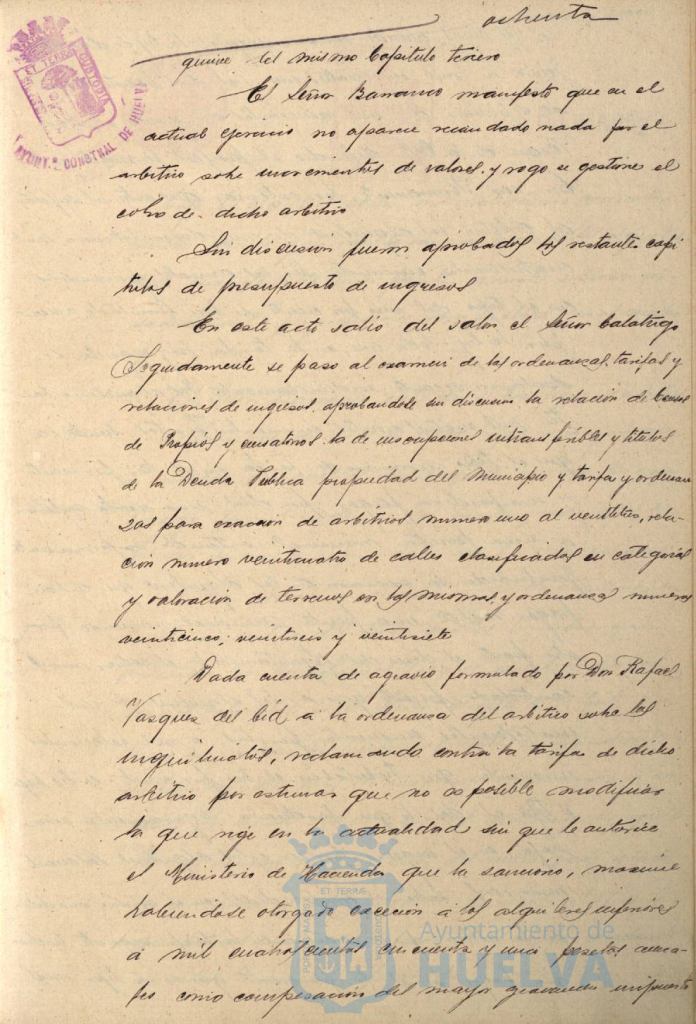 ochenta
quince del mismo Capitulo tercero
El Señor Barranco manifestó que en el
actual ejercicio no aparece recaudado nada por el
arbitrio sobre incrementos de valores, y rogo se gestione el
cobro de dicho arbitrio
Sin discusion fueron aprobados los restantes capi
tulos de presupuesto de ingresos
En este acto salio del salon el Señor Calatrigo
Seguidamente se paso al examen de las ordenanzas, tarifas y
relaciones de ingresos, aprobandose sin discusion la relación de bienes
de Propios y censatarios, la de inscripciones intransferibles y titulos
de la Deuda Publica propiedad del Municipio y tarifa y ordenan
zas para exacción de arbitrios numero uno al veintitres, rela-
ción numero veinticuatro de calles clasificadas en categorias
y valoración de terrenos en las mismas, y ordenanzas numeros
veinticinco, veintiseis y veintisiete
Dada cuenta de agravio formulado por Don Rafael
Vasquez del Cid a la ordenanza del arbitrio sobre los
inquilinatos, reclamando contra la tarifa de dicho
arbitrio por estimar que no es posible modificar
la que rige en la actualidad sin que le autorice
el Ministerio de Hacienda que la sancionó, maxime
habiendose otorgado exención a los alquileres inferiores
a mil cuatrocientas cincuenta y una pesetas anua-
les como compensación del mayor gravamen impuesto
ET TERRÆ CUSTODIA
AYUNT.º CONSTNAL. DE HUELVA
PORTUS MARIS ET TERRÆ CUSTODIA
Ayuntamiento de
HUELVA